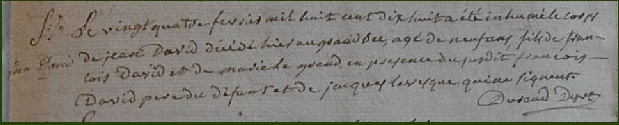 Le vingt quatre fevrier mil huit cent dix huit a été inhumé le corps
de jean David décédé hier au grand agé de neuf ans, fils de fran-
cois David et de marie le grand, en presence du susdit francois
David pere du défunt et de jacques levesque qui ne signent